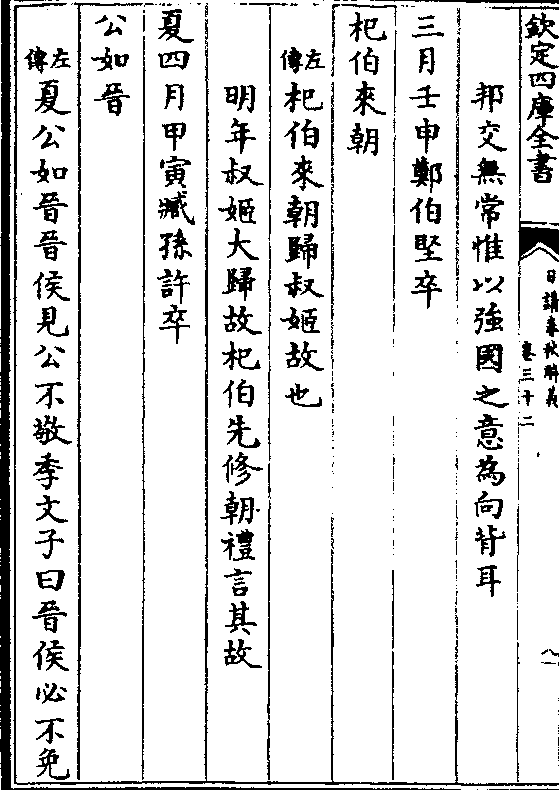 欽定四庫全書
日講春秋解義
卷三十二
八
邦交無常惟以強國之意為向背耳
三月壬申鄭伯堅卒
杞伯來朝
左傳杞伯來朝歸叔姬故也
明年叔姬大歸故杞伯先修朝禮言其故
夏四月甲寅臧孫許卒
公如晉
左傳夏公如晉晉侯見公不敬季文子曰晉侯必不免